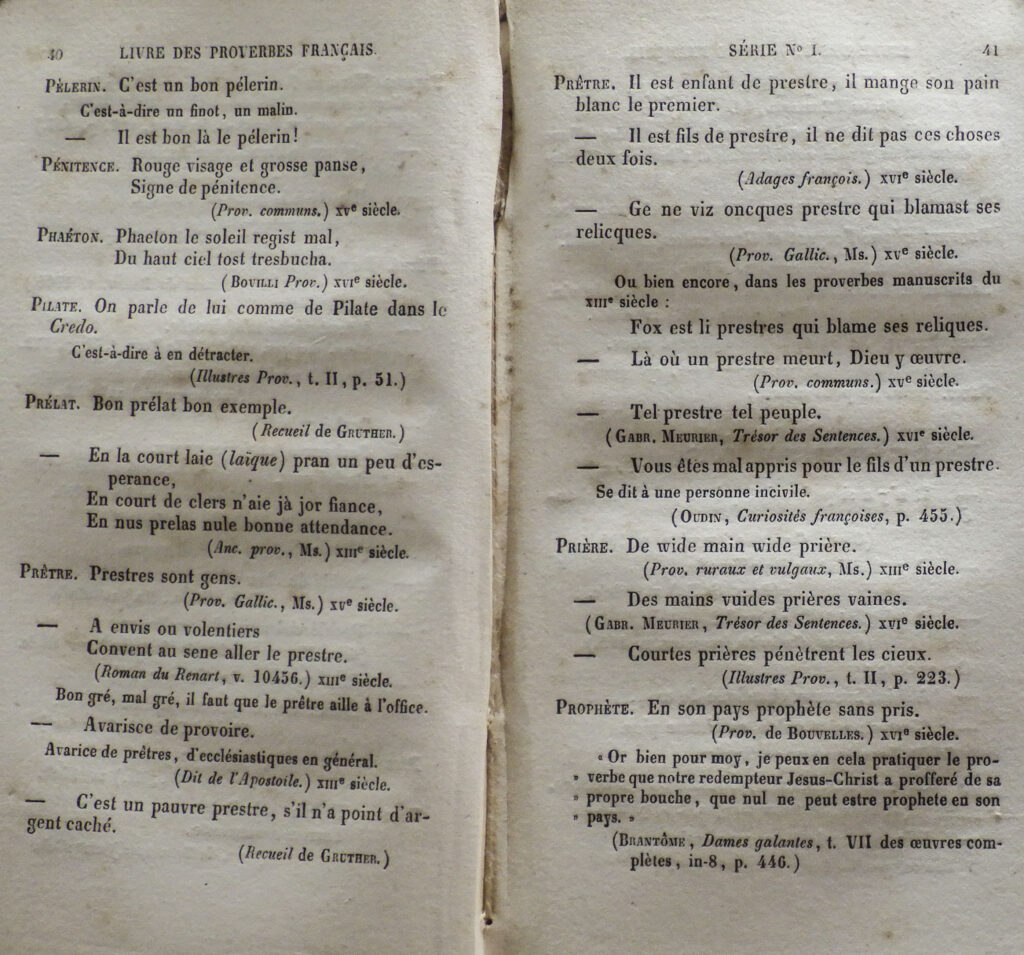 40 LIVRE DES PROVERBES FRANÇAIS.
PÈLERIN. C'est un bon pélerin.
C'est-à-dire un finot, un malin.
— Il est bon là le pélerin!
PÉNITENCE. Rouge visage et grosse panse,
Signe de pénitence.
(Prov. communs.) XVe siècle.
PHAÉTON. Phaeton le soleil regist mal,
Du haut ciel tost tresbucha.
(BOVILLI Prov.) XVIe siècle.
PILATE. On parle de lui comme de Pilate dans le
Credo.
C'est-à-dire à en détracter.
(Illustres Prov., t. II, p. 51.)
PRÉLAT. Bon prélat bon exemple.
(Recueil de GRUTHER.)
— En la court laie (laïque) pran un peu d'es-
perance,
En court de clers n'aie jà jor fiance,
En nus prelas nule bonne attendance.
(Anc. prov., Ms.) XIIIe siècle.
PRÊTRE. Prestres sont gens.
(Prov. Gallic., Ms.) XVe siècle.
— A envis ou volentiers
Convent au sene aller le prestre.
(Roman du Renart, v. 10456.) XIIIe siècle.
Bon gré, mal gré, il faut que le prêtre aille à l'office.
— Avarisce de provoire.
Avarice de prêtres, d'ecclésiastiques en général.
(Dit de l'Apostoile.) XIIIe siècle.
— C'est un pauvre prestre, s'il n'a point d'ar-
gent caché.
(Recueil de GRUTHER.)
SÉRIE No I. 41
PRÊTRE. Il est enfant de prestre, il mange son pain
blanc le premier.
— Il est fils de prestre, il ne dit pas ces choses
deux fois.
(Adages françois.) XVIe siècle.
— Ge ne viz oncques prestre qui blamast ses
relicques.
(Prov. Gallic., Ms.) XVe siècle.
Ou bien encore, dans les proverbes manuscrits du
XIIIe siècle :
Fox est li prestres qui blame ses reliques.
— Là où un prestre meurt, Dieu y œuvre.
(Prov. communs.) XVe siècle.
— Tel prestre tel peuple.
(GABR. MEURIER, Trésor des Sentences.) XVIe siècle.
— Vous êtes mal appris pour le fils d'un prestre.
Se dit à une personne incivile.
(OUDIN, Curiosités françoises, p. 455.)
PRIÈRE. De wide main wide prière.
(Prov. ruraux et vulgaux, Ms.) XIIIe siècle.
— Des mains vuides prières vaines.
(GABR. MEURIER, Trésor des Sentences.) XVIe siècle.
— Courtes prières pénètrent les cieux.
(Illustres Prov., t. II, p. 223.)
PROPHÈTE. En son pays prophète sans pris.
(Prov. de BOUVELLES.) XVIe siècle.
« Or bien pour moy, je peux en cela pratiquer le pro-
» verbe que notre redempteur Jesus-Christ a profferé de sa
» propre bouche, que nul ne peut estre prophete en son
» pays. »
(BRANTÔME, Dames galantes, t. VII des œuvres com-
plètes, in-8, p. 446.)